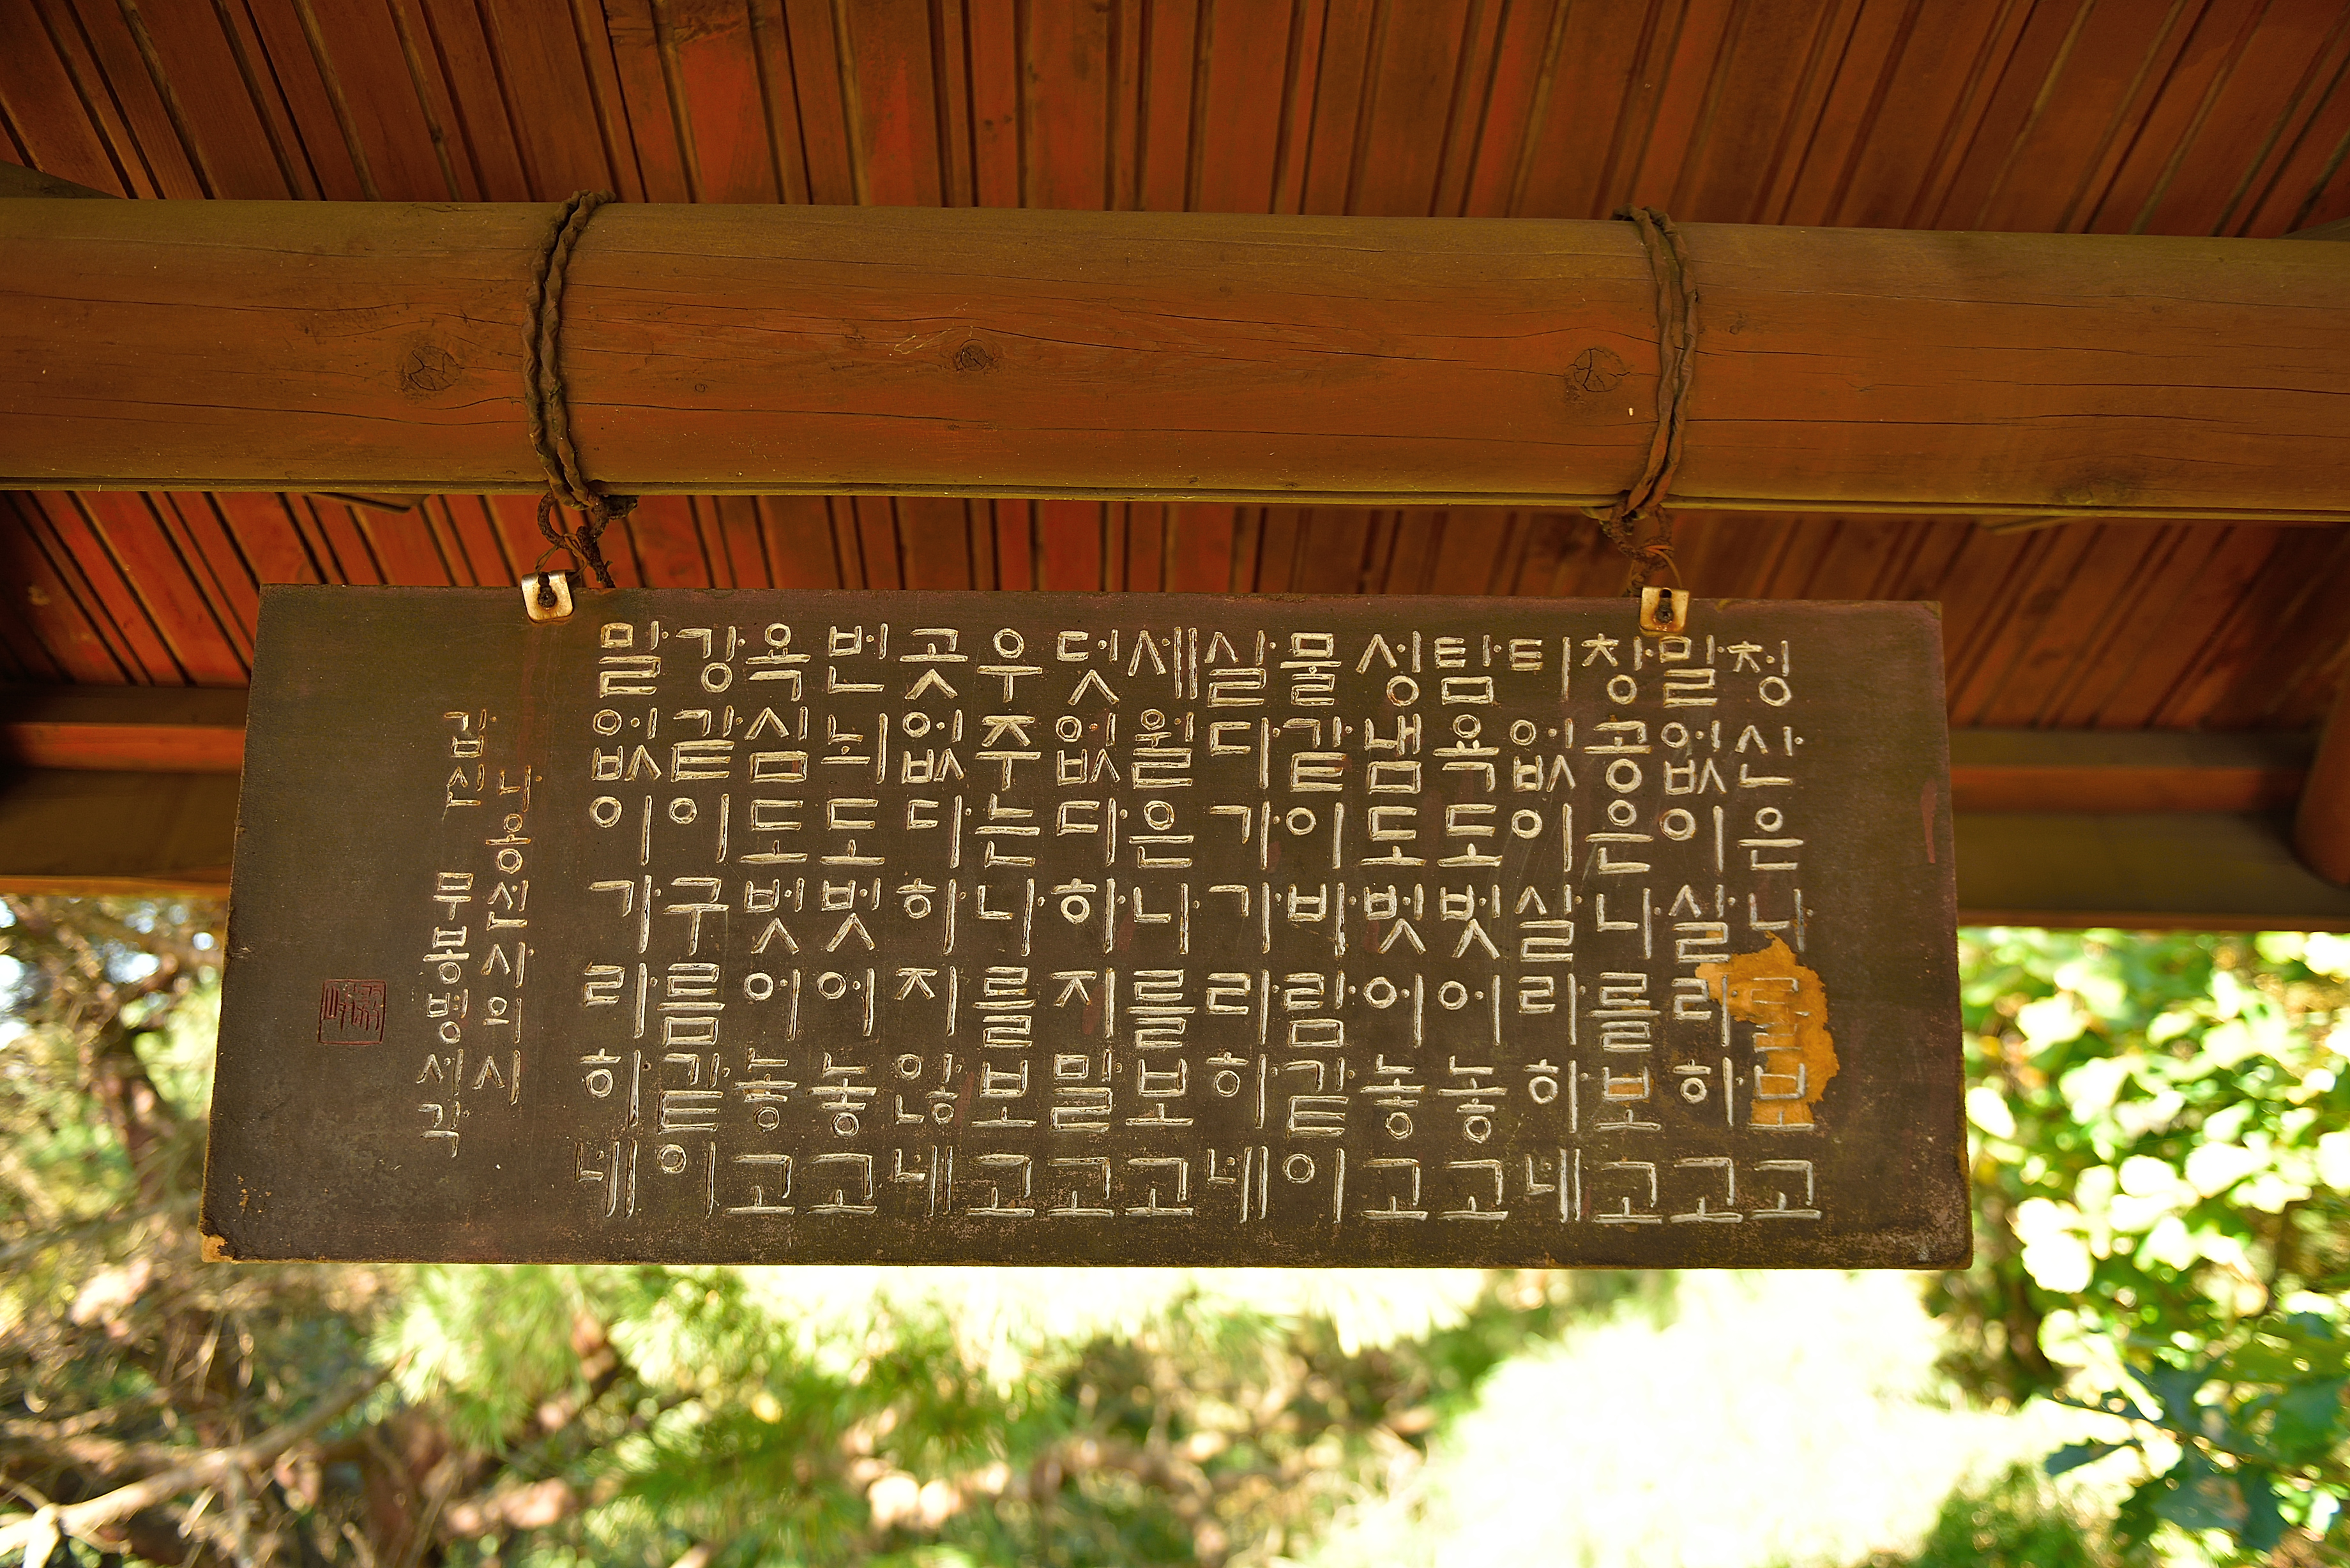 청산은나를보고
말없이살라하고
창공은나를보고
티없이살라하네
탐욕도벗어놓고
성냄도벗어놓고
물같이바람같이
살다가가라하네
세월은나를보고
덧없다하지말고
우주는나를보고
곳없다하지않네
번뇌도벗어놓고
욕심도벗어놓고
강같이구름같이
말없이가라하네
나옹선사의시
갑신 무봉병세각